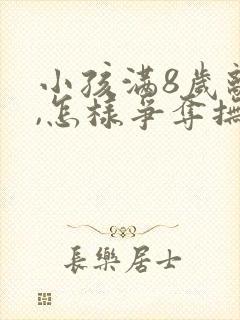 小孩滿8歲離
,怎樣爭奪撫
長樂居士